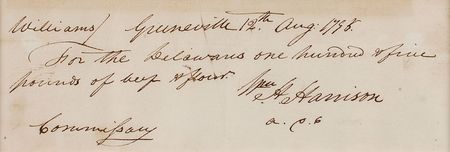 Williams / Greneville 12th Aug. 1798.
For the Delawares one hundred & five
pounds of beef & flour.
Wm
H. Harrison
a. d. c
Commissary